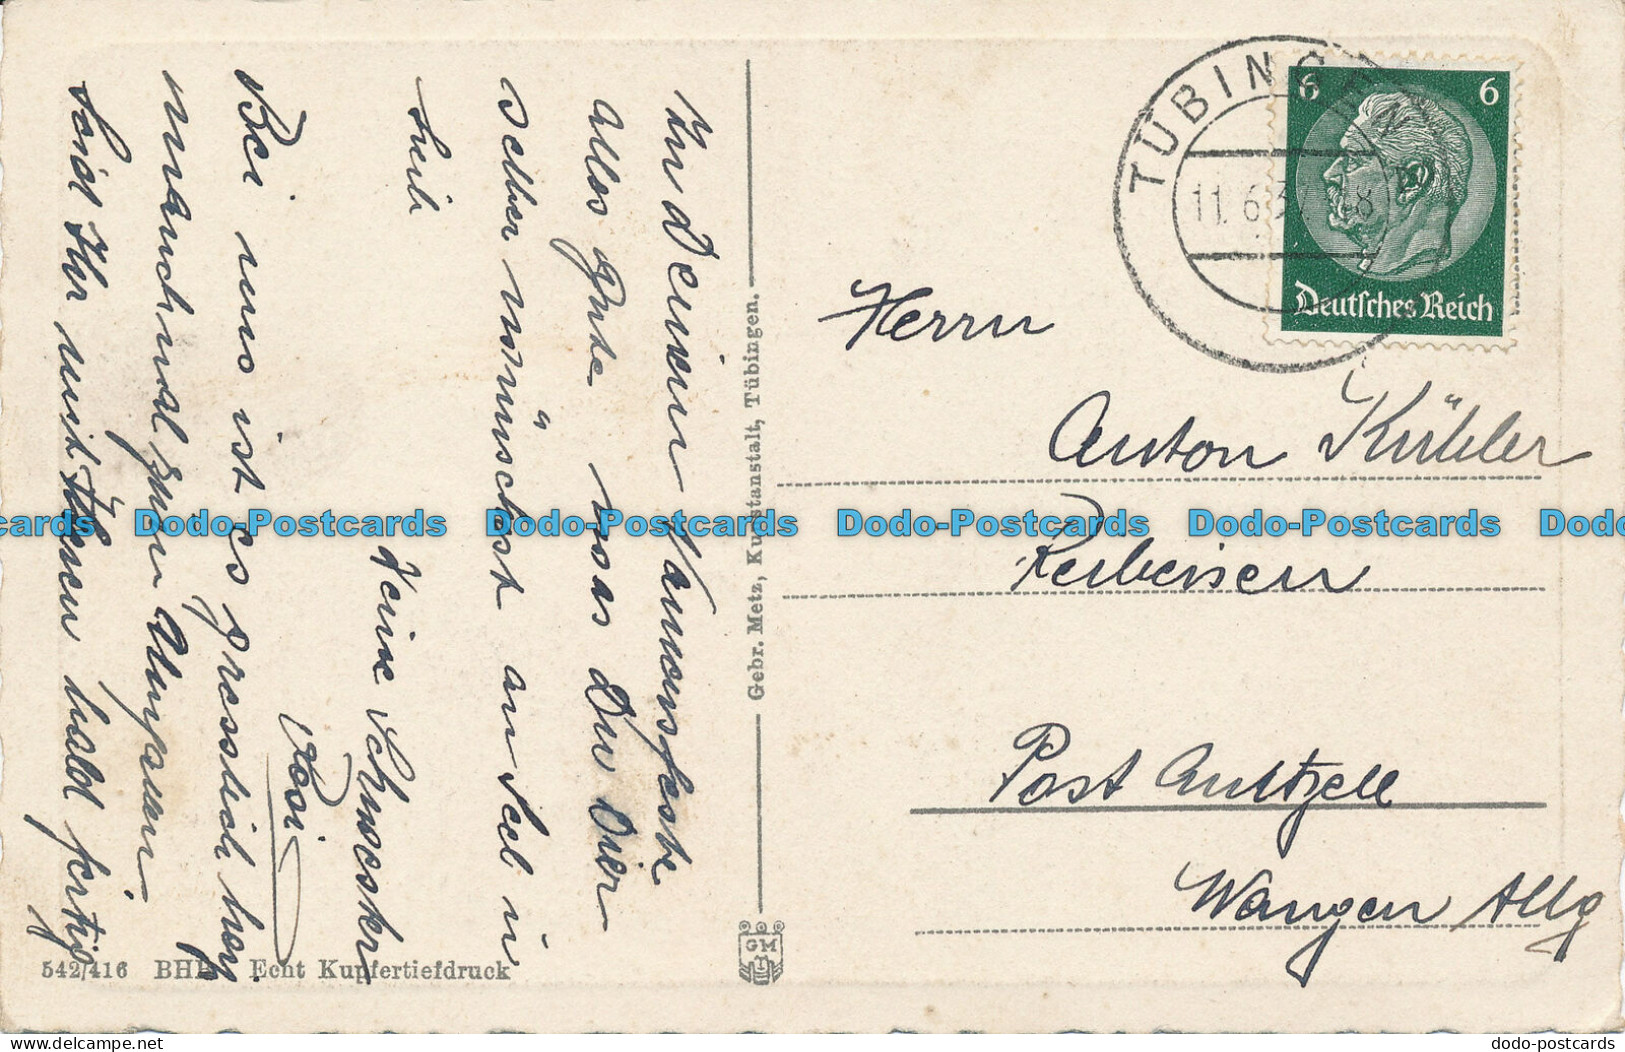 Zu Deinem Namensfeste
alles Gute was Du Dir
selber wünschest an Seel u
Leib
Deine Schwester
Rosi
Bei uns ist es gresslich heiß
manchmal zum
Seid Ihr mit Öhmen bald fertig
542/416 BHR Echt Kupfertiefdruck
Gebr. Metz, Kunstanstalt, Tübingen.
GM
TÜBINGEN
11.6.37.-18
6 6
Deutsches Reich
Herrn
Anton Kühler
Post Amtzell
Wangen Allg
Dodo-Postcards Dodo-Postcards Dodo-Postcards Dodo-Postcards
dodo-postcards.com
dodo-postcards